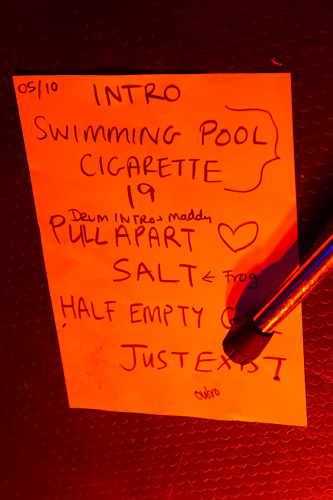 05/10
INTRO
SWIMMING POOL
CIGARETTE
19
Drum INTRO + maddy
PULL APART
SALT ← Frog
HALF EMPTY
JUST EXIST
outro